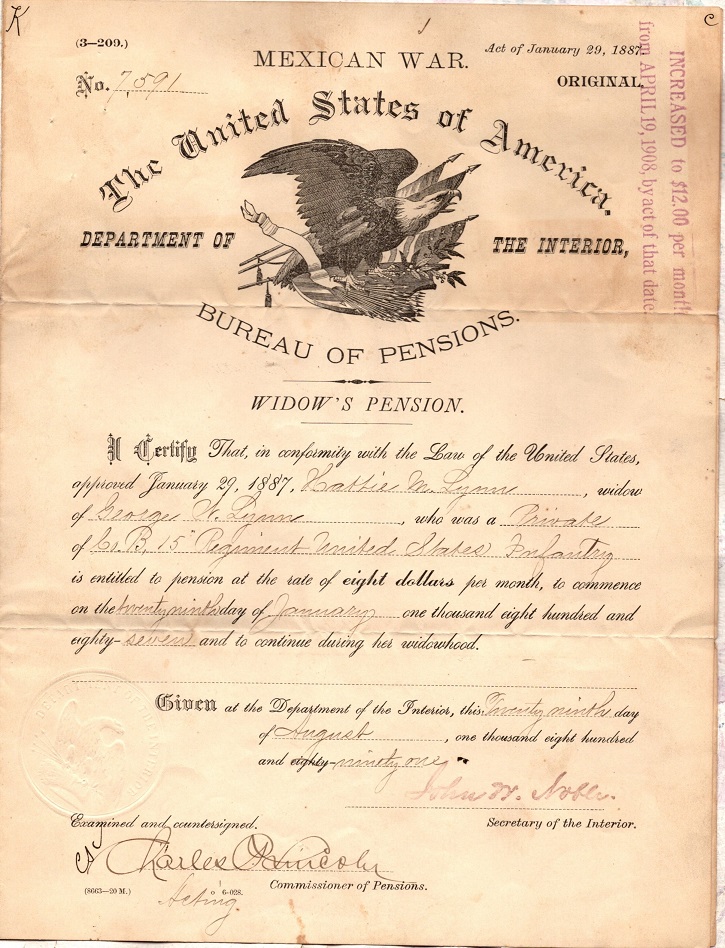 K
C
(3—209.)
MEXICAN WAR.
Act of January 29, 1887.
No. 7,591
ORIGINAL.
INCREASED to $12.00 per month
from APRIL 19, 1908, by act of that date.
The United States of America.
DEPARTMENT OF THE INTERIOR,
BUREAU OF PENSIONS.
WIDOW'S PENSION.
I Certify That, in conformity with the Law of the United States,
approved January 29, 1887, Hattie M. Lynn, widow
of George W. Lynn, who was a Private
of Co. B, 15" Regiment United States Infantry
is entitled to pension at the rate of eight dollars per month, to commence
on the twenty ninth day of January one thousand eight hundred and
eighty-seven and to continue during her widowhood.
Given at the Department of the Interior, this Twenty ninth day
of August, one thousand eight hundred
and eighty-ninety one
John W. Noble.
Secretary of the Interior.
Examined and countersigned.
Charles Lincoln
Commissioner of Pensions.
(8663—20 M.)
6-028.
Acting.